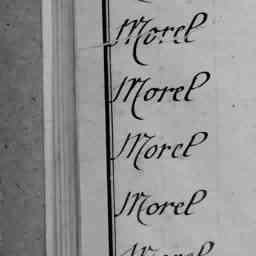 Morel
Morel
Morel
Morel
Morel